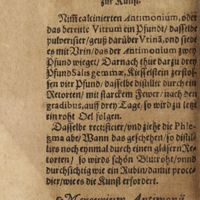 zur Kunst.
Nim̃ calcinierten Antimonium, oder
das bereitte Vitrum ein Pfundt / dasselbe
pulverisier / geuß darüber Vrina, vnd siede
es mit Vrin / das der Antimonium zwey
Pfund wieget / Darnach thue darzu drey
Pfund Salis gemmæ, Kieselstein zerstos-
sen vier Pfund / dasselbe distillir durch ein
Retorten / mit starckem Fewer / nach den
gradibus, auff drey Tage / so wird zu letzt
ein roht Oel folgen.
Dasselbe rectificier / vnd ziehe die Phle-
gma ab / Wann das geschehen / so distil-
lirs noch eynmal durch einen gläsern Re-
torten / so wirds schön Blutroht / vnnd
durchsichtig wie ein Rubin / damit proce-
dier / wie es die Kunst erfordert.
Mercurium Antimonij